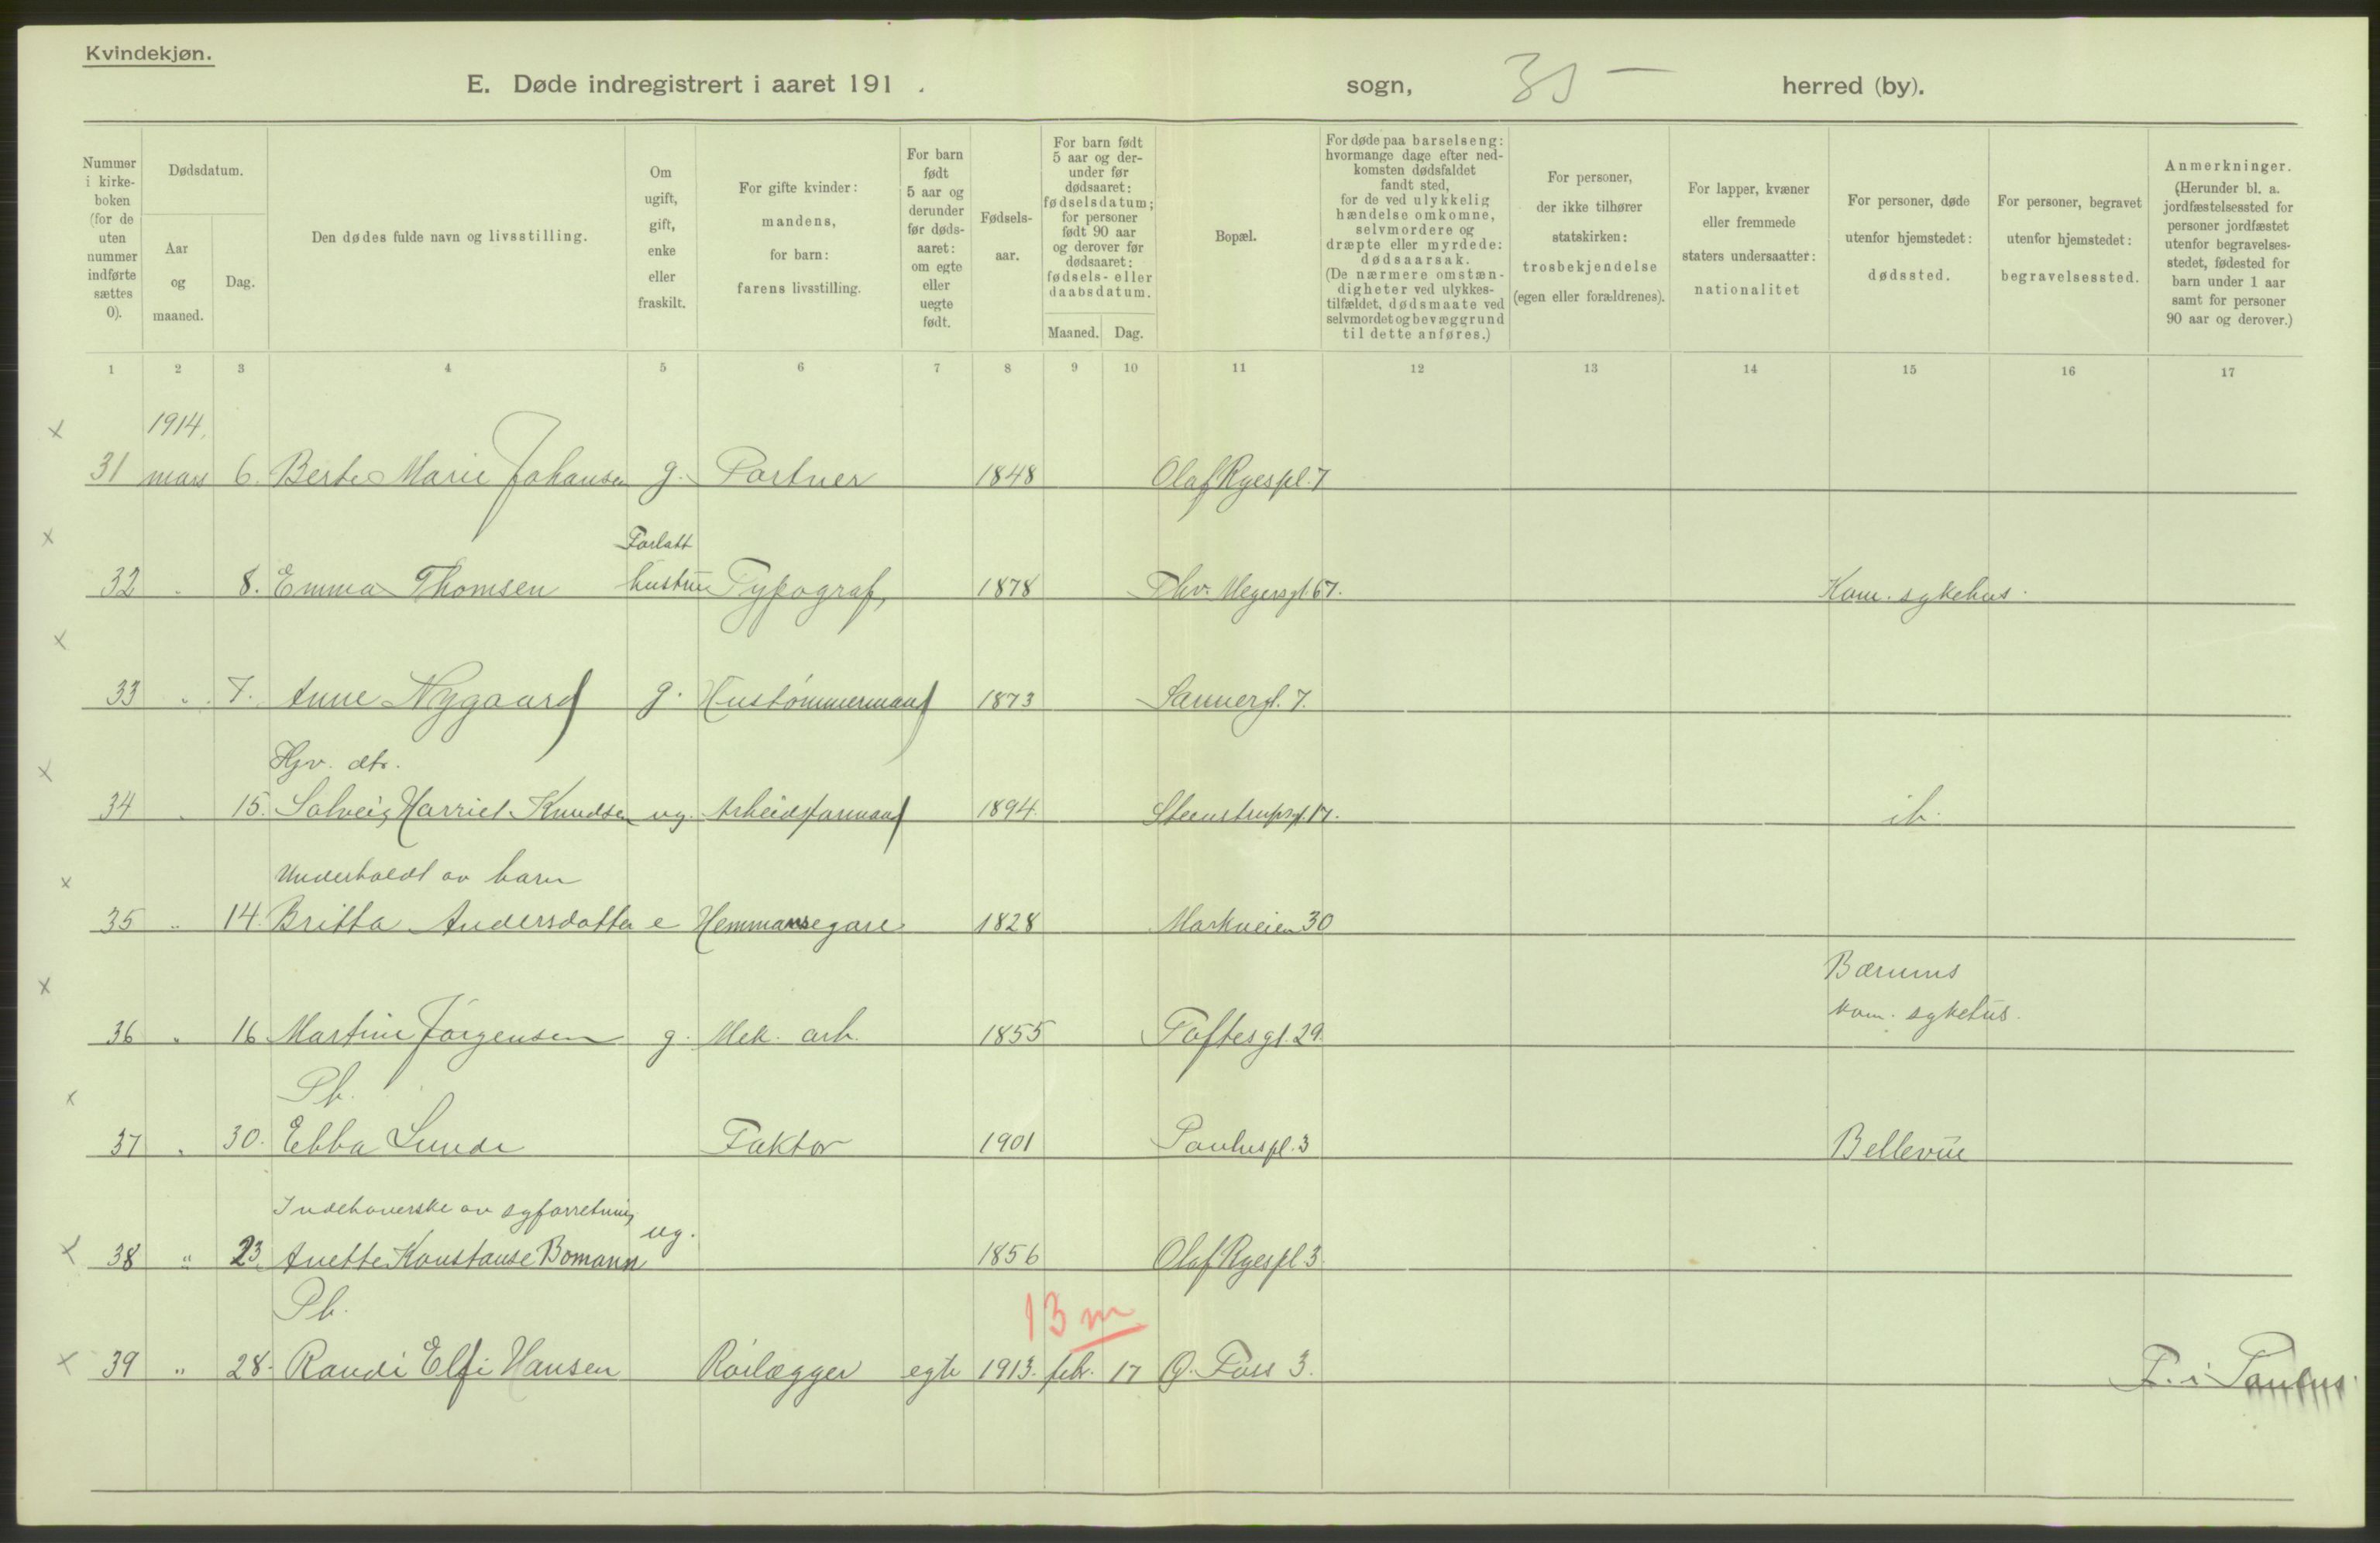 Kvindekjøn.
E. Døde indregistrert i aaret 191 . sogn, 35 — herred (by).
Nummer i kirke-boken (for de uten nummer indførte sættes 0).
Dødsdatum.
Aar og maaned.
Dag.
Den dødes fulde navn og livsstilling.
Om ugift, gift, enke eller fraskilt.
For gifte kvinder: mandens, for barn: farens livsstilling.
For barn født 5 aar og derunder før døds-aaret: om egte eller uegte født.
Fødsels-aar.
For barn født 5 aar og der-under før dødsaaret: fødselsdatum; for personer født 90 aar og derover før dødsaaret: fødsels- eller daabsdatum.
Maaned. Dag.
Bopæl.
For døde paa barselseng: hvormange dage efter ned-komsten dødsfaldet fandt sted, for de ved ulykkelig hændelse omkomne, selvmordere og dræpte eller myrdede: dødsaarsak. (De nærmere omstæn-digheter ved ulykkes-tilfældet, dødsmaate ved selvmordet og bevæggrund til dette anføres.)
For personer, der ikke tilhører statskirken: trosbekjendelse (egen eller forældrenes).
For lapper, kvæner eller fremmede staters undersaatter: nationalitet
For personer, døde utenfor hjemstedet: dødssted.
For personer, begravet utenfor hjemstedet: begravelsessted.
Anmerkninger. (Herunder bl. a. jordfæstelsessted for personer jordfæstet utenfor begravelses-stedet, fødested for barn under 1 aar samt for personer 90 aar og derover.)
1 2 3 4 5 6 7 8 9 10 11 12 13 14 15 16 17
x 1914.
31 mars 6. Berte Marie Johansen g. Portner 1848 Olaf Ryespl. 7
x Forlatt
32 " 8. Emma Thomsen hustru Typograf, 1878 Thv. Meyersgt. 67. Kom. sykehus.
x
33 " 7. Anne Nygaard g. Hustømmermand 1873 Sannergt. 7.
x Hjv. dtr.
34 " 15. Solveig Harriet Knudsen ug. Arbeidsformand 1894. Steenstrupsgt. 17. ib.
x Underholdt av barn
35 " 14. Britta Andersdatter e Hemmansegare 1828 Markveien 30
x Bærums
36 " 16 Martine Jørgensen g. Mek. arb. 1855 Toftesgt. 29. kom. sykehus.
x Pb.
37 " 30. Ebba Lunde Faktor 1901 Pauluspl. 3 Bellevue
Indehaverske av syforretning
x 38 " 23. Anette Konstanse Bomann ug. 1856 Olaf Ryespl 3.
Pb. 13 m
x 39 " 28. Randi Elfi Hansen Rørlægger egte 1913. febr. 17 Ø. Foss 3. F. i Paulus.